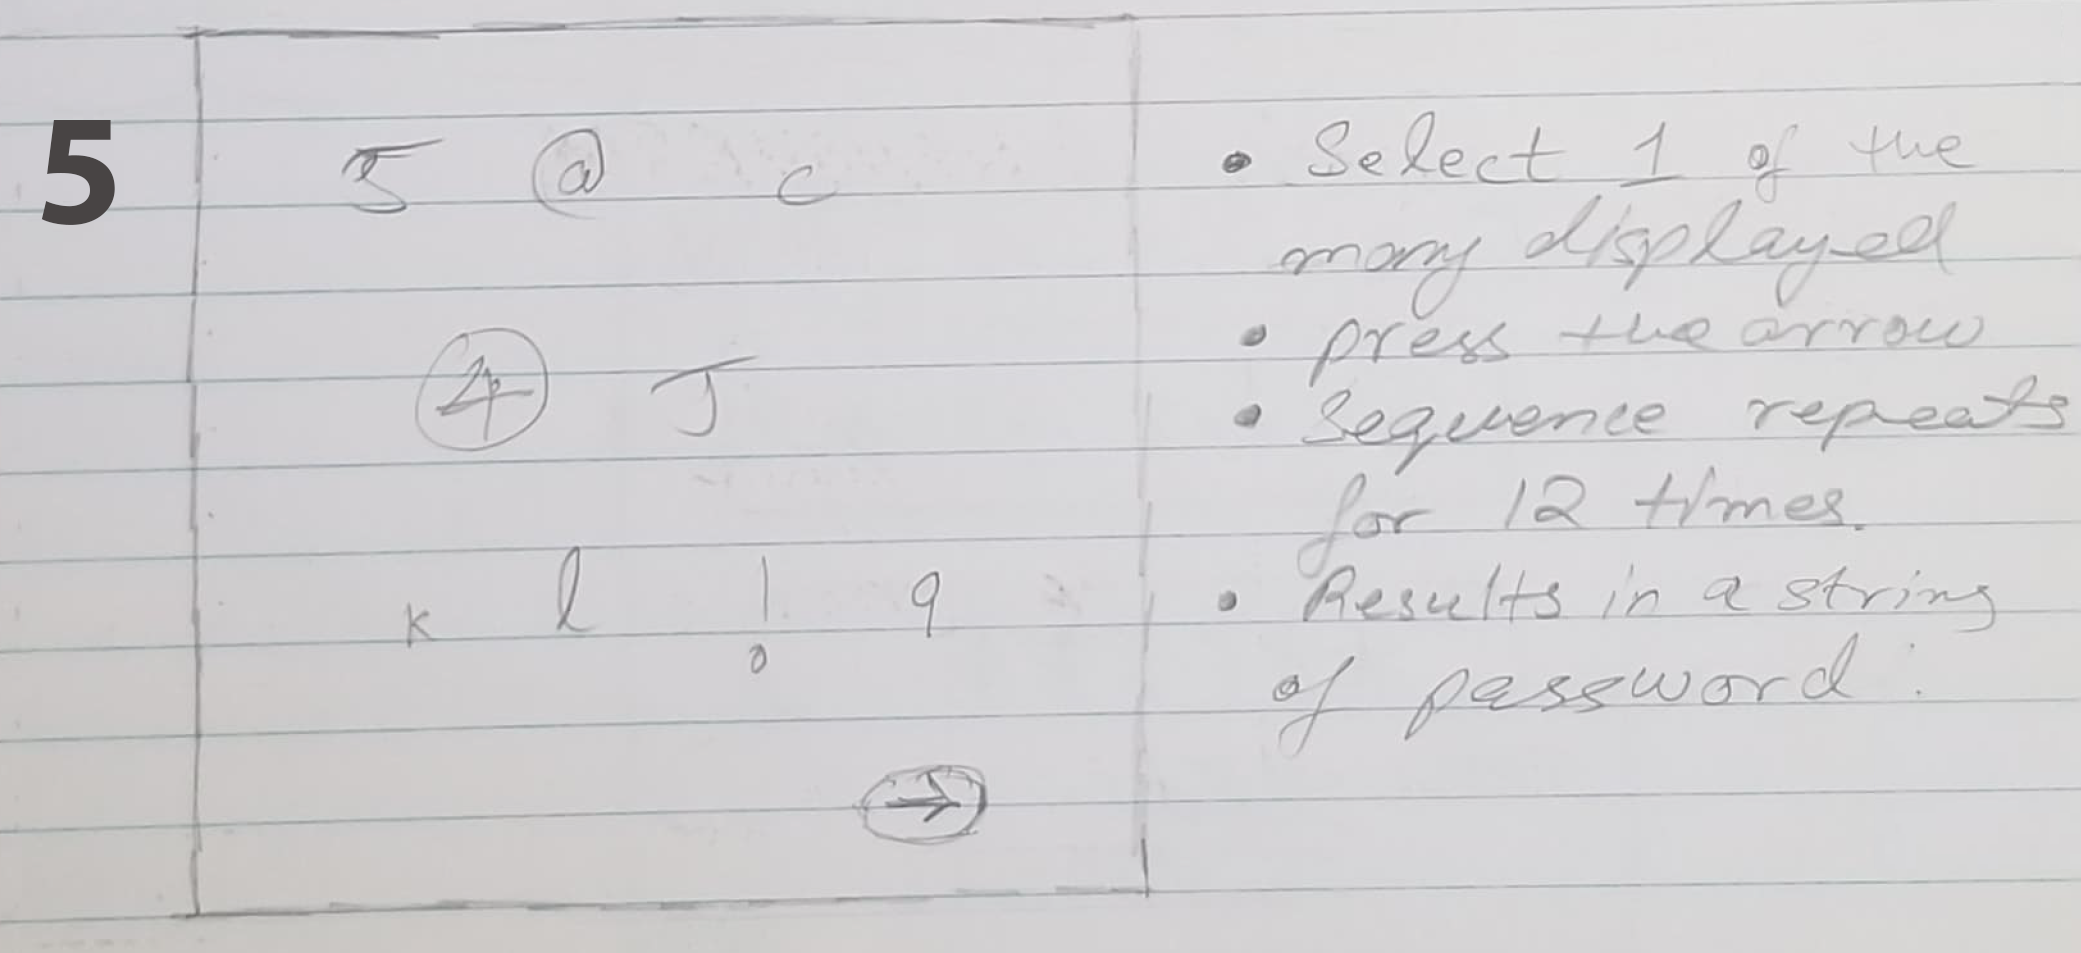 5
5 @ c
4 J
k l 1 9
0
→
• Select 1 of the
many displayed
• press the arrow
• Sequence repeats
for 12 times.
• Results in a string
of password.